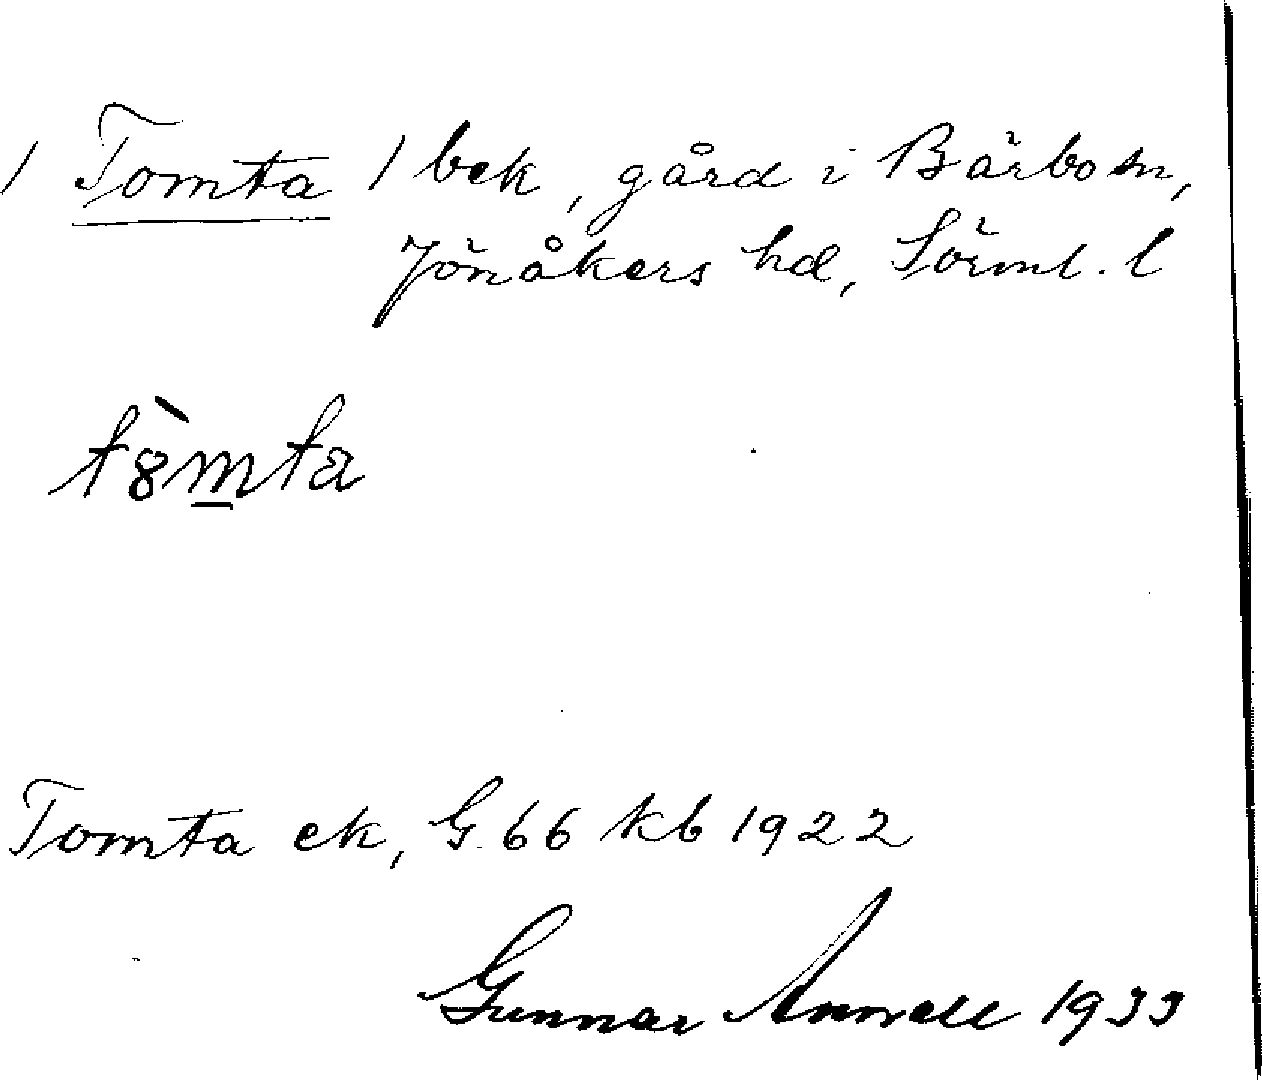 / Tomta / bek, gård i Bärbo sn,
Jönåkers hd, Sörml. l
t8̀mta
Tomta ek, G. 66 kb 1922
Gunnar 1933